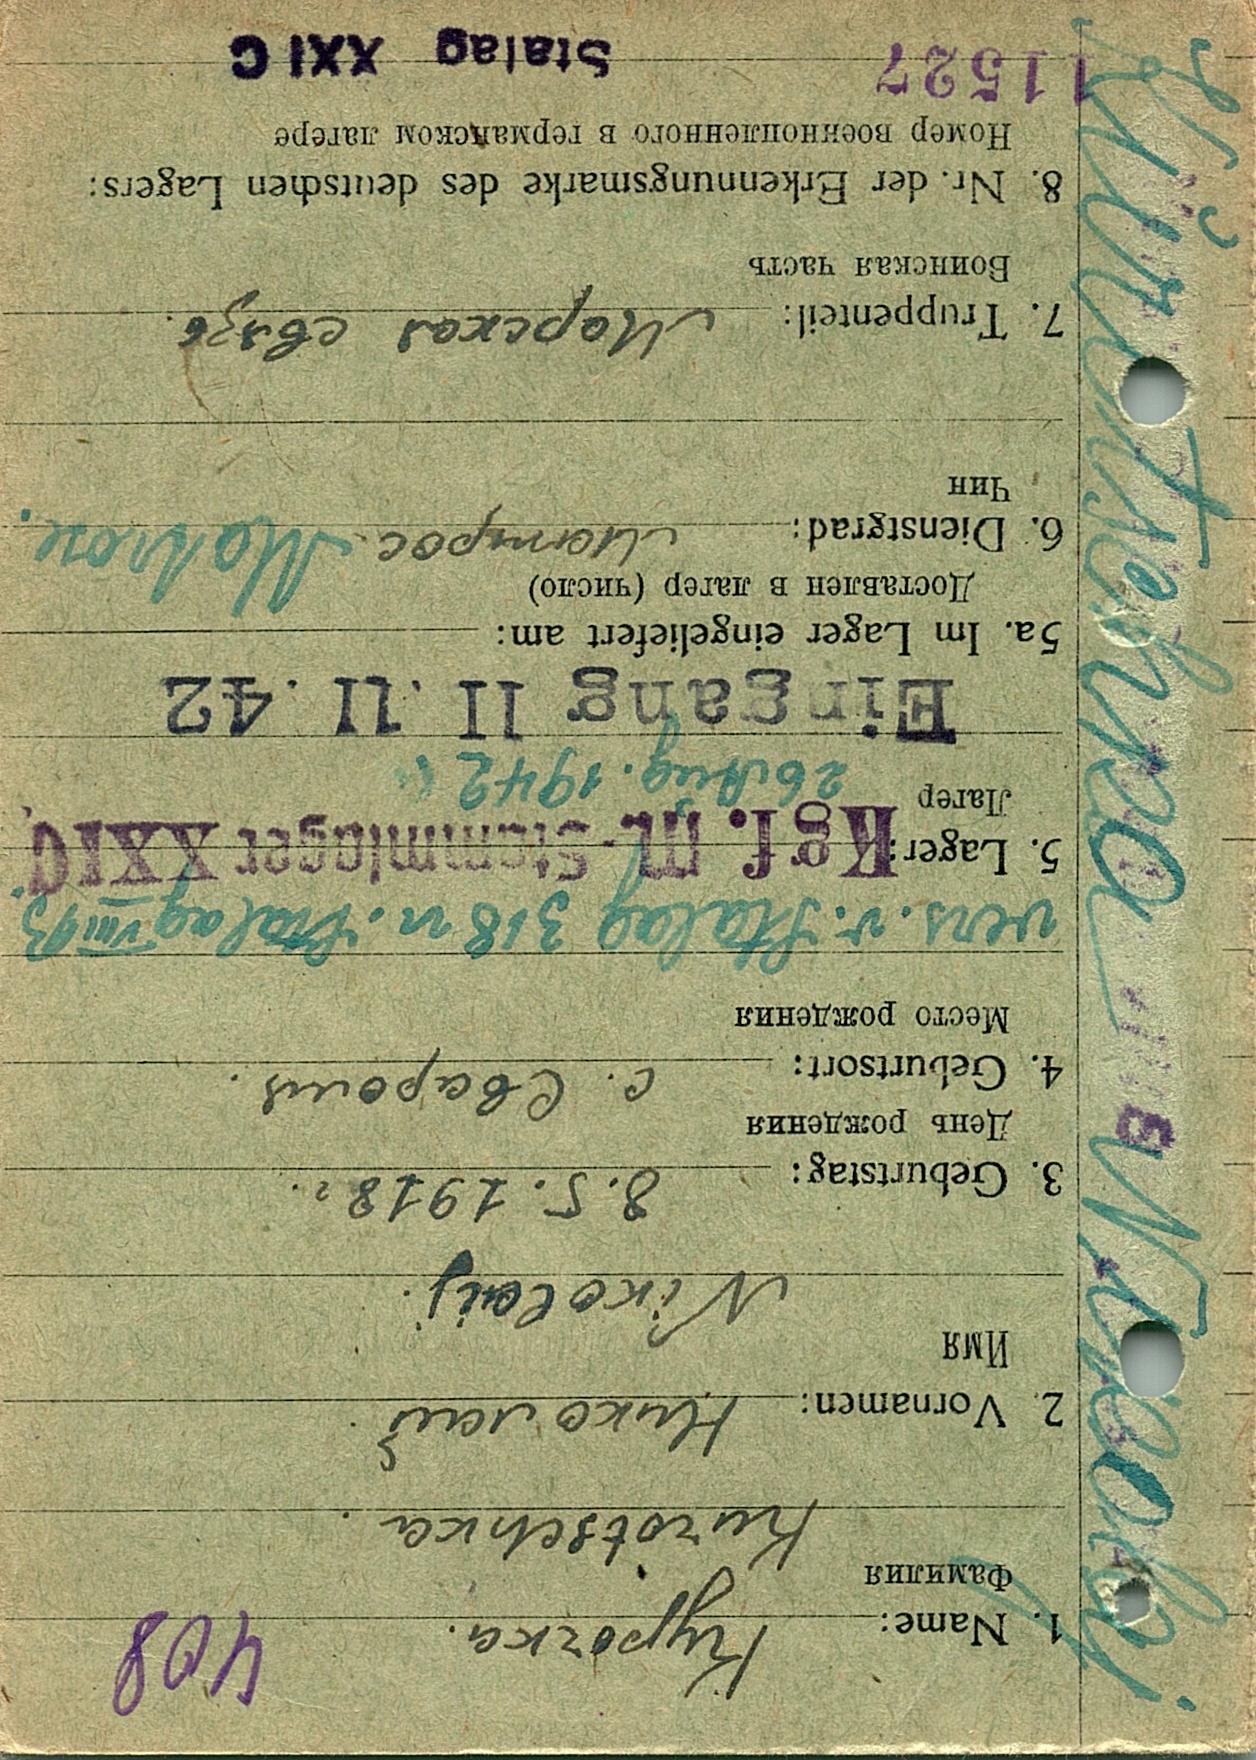 408
1. Name: Курочка.
Фамилия
Kurotschka.
2. Vornamen: Николай
Имя
Nikolaij.
3. Geburtstag: 8.5.1918г.
День рождения
4. Geburtsort: с. Сварыш.
Место рождения
vers. v. Stalag 318 n. Stalag VIII B.
5. Lager: Kgf. M.-Stammlager XXI C,
Лагер
26. Aug. 1942
Eingang 11. 11. 42
5a. Im Lager eingeliefert am:
Доставлен в лагер (число)
6. Dienstgrad: Матрос Matrose.
Чин
7. Truppenteil: Морская связь.
Воинская часть
8. Nr. der Erkennungsmarke des deutschen Lagers:
Номер военнопленного в германском лагере
11527 Stalag XXI C
Kurotschka Nikolaj